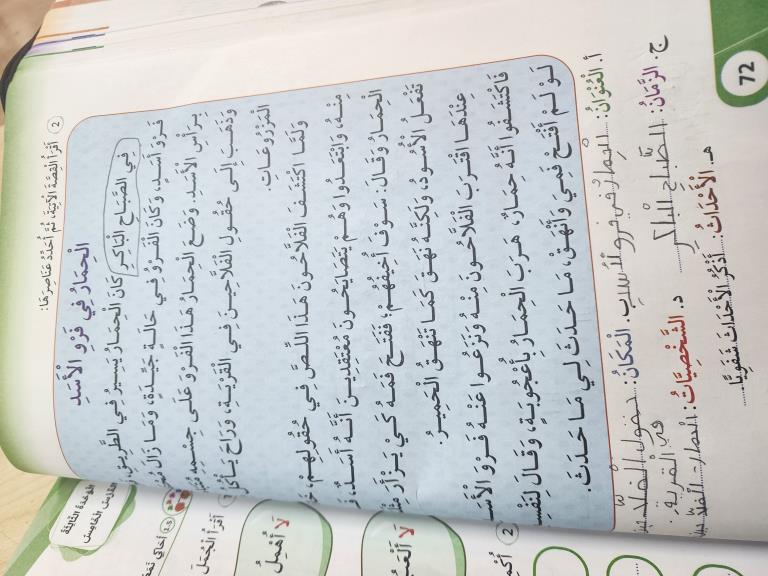 2 أَقْرَأُ الْقِصَّةَ الْآتِيَةَ، ثُمَّ أُحَدِّدُ عَنَاصِرَهَا:
الْحِمَارُ فِي فَرْوِ الْأَسَدِ
فِي الصَّبَاحِ الْبَاكِرِ كَانَ الْحِمَارُ يَسِيرُ فِي الطَّرِيقِ
فَرْوَ أَسَدٍ، وَكَانَ الْفَرْوُ فِي حَالَةٍ جَيِّدَةٍ، وَمَا زَالَ
بِرَأْسِ الْأَسَدِ. وَضَعَ الْحِمَارُ هَذَا الْفَرْوَ عَلَى جِسْمِهِ
وَذَهَبَ إِلَى حُقُولِ الْفَلَّاحِينَ فِي الْقَرْيَةِ، وَرَاحَ يَأْكُلُ
الْمَزْرُوعَاتِ.
وَلَمَّا اكْتَشَفَ الْفَلَّاحُونَ هَذَا اللِّصَّ فِي حُقُولِهِمْ،
مِنْهُ، وَابْتَعَدُوا وَهُمْ يَتَصَايَحُونَ مُعْتَقِدِينَ أَنَّهُ أَسَدٌ،
الْحِمَارُ وَقَالَ: سَوْفَ أُخِيفُهُمْ؛ فَفَتَحَ فَمَهُ كَيْ يَزْأَرَ
تَفْعَلُ الْأُسُودُ، وَلَكِنَّهُ نَهَقَ كَمَا تَنْهَقُ الْحَمِيرُ.
عِنْدَهَا اقْتَرَبَ الْفَلَّاحُونَ مِنْهُ وَنَزَعُوا عَنْهُ فَرْوَ
فَاكْتَشَفُوا أَنَّهُ حِمَارٌ، هَرَبَ الْحِمَارُ بِأُعْجُوبَةٍ، وَقَالَ
لَوْ لَمْ أَفْتَحْ فَمِي وَأَنْهَقْ، مَا حَدَثَ لِي مَا حَدَثَ.
أ. الْعُنْوَانُ: الحمار في فرو الأسد ب. الْمَكَانُ: حقول الفلاحين
في القرية
ج. الزَّمَانُ: الصَّبَاحِ الْبَاكِرِ د. الشَّخْصِيَّاتُ: الحمار الفلاحين
هـ. الْأَحْدَاثُ: أَذْكُرُ الْأَحْدَاثَ شَفَوِيًّا.
72
لَا أُهْمِلُ
لَا
2